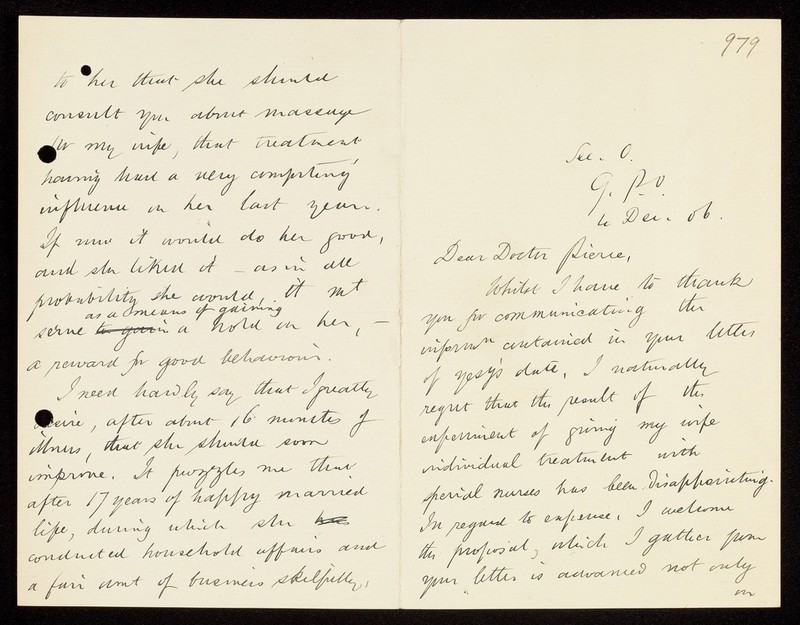 to her that she should
consult you about massage
for my wife, that treatment
having had a very comforting
influence on her last year.
If now it would do her good,
and she liked it – as in all
probability she would, it mt
as a means of gaining
serve to gain a hold on her, –
a reward for good behaviour.
I need hardly say that I greatly
desire, after about 16 months of
illness, that she should soon
improve. It puzzles me that
after 17 years of happy married
life, during which she has
conducted household affairs and
a fair amt of business skilfully,
979
Sec. O.
G. P. O.
4 Dec. 06.
Dear Doctor Pierce,
Whilst I have to thank
you for communicating the
informn contained in your letter
of yesty's date, I naturally
regret that the result of the
experiment of giving my wife
individual treatment with
special nurses has been disappointing.
In regard to expense, I welcome
the proposal, which I gather from
your letter is advanced not only
on